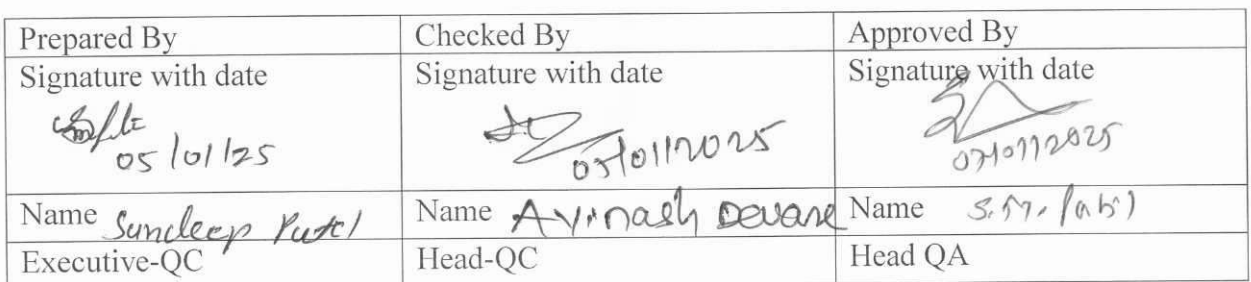 Prepared By Checked By Approved By
Signature with date Signature with date Signature with date
05/01/25 /01/2025 07/01/2025
Name Sundeep Patel Name Avinash Devare Name S.M.
Executive-QC Head-QC Head QA